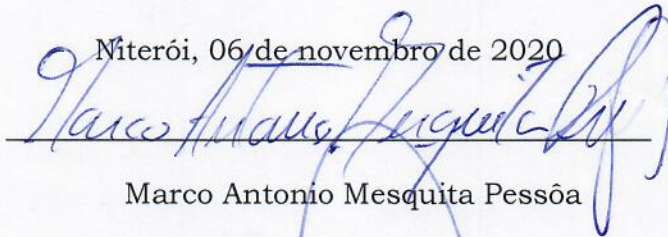 Niterói, 06 de novembro de 2020
Marco Antonio Mesquita
Marco Antonio Mesquita Pessôa